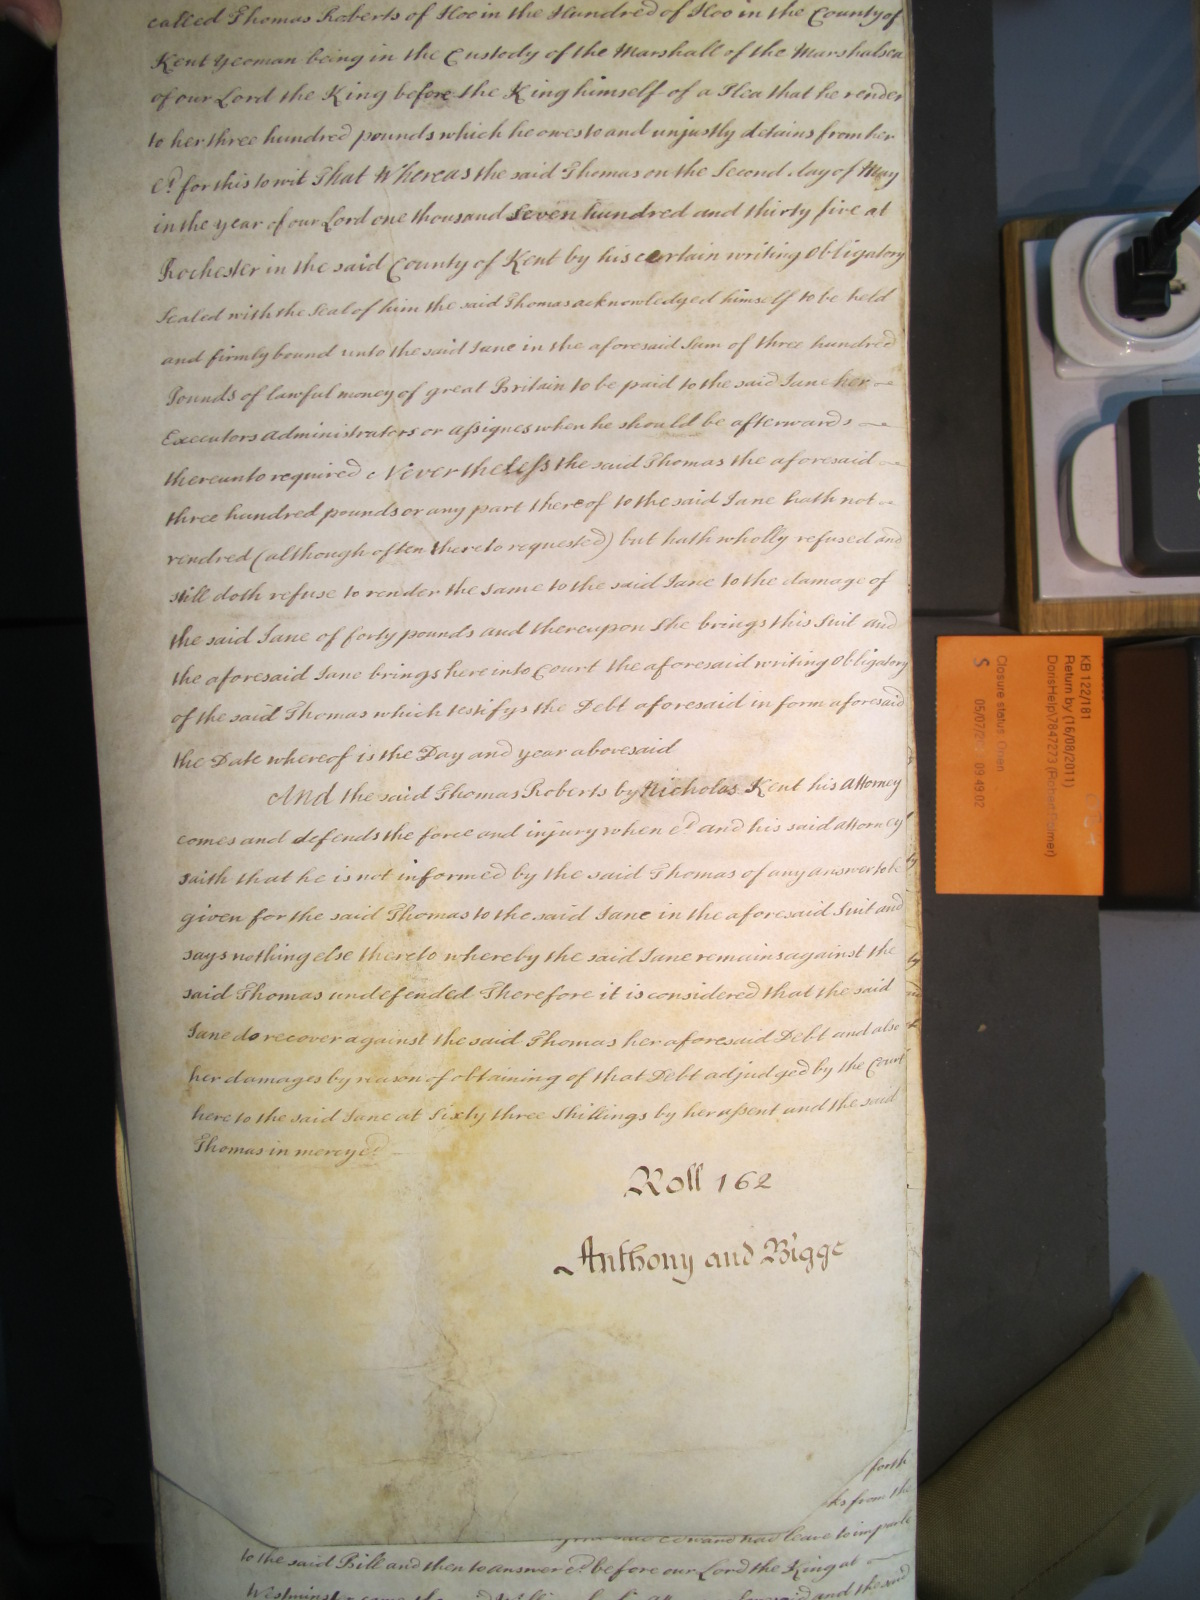 called Thomas Roberts of Hoo in the Hundred of Hoo in the County of
Kent Yeoman being in the Custody of the Marshall of the Marshalsea
of our Lord the King before the King himself of a Plea that he render
to her three hundred pounds which he owes to and unjustly detains from her
&c for this to wit That Whereas the said Thomas on the Second day of May
in the year of our Lord one thousand seven hundred and thirty five at
Rochester in the said County of Kent by his certain writing Obligatory
Sealed with the Seal of him the said Thomas acknowledged himself to be held
and firmly bound unto the said Jane in the aforesaid Sum of three hundred
Pounds of lawful money of great Britain to be paid to the said Jane her
Executors Administrators or Assignes when he should be afterwards
thereunto required Nevertheless the said Thomas the aforesaid
three hundred pounds or any part thereof to the said Jane hath not
rendred (although often thereto requested) but hath wholly refused and
still doth refuse to render the same to the said Jane to the damage of
the said Jane of forty pounds and thereupon She brings this Suit and
the aforesaid Jane brings here into Court the aforesaid writing Obligatory
of the said Thomas which testifys the Debt aforesaid in form aforesaid
the Date whereof is the Day and year abovesaid
And the said Thomas Roberts by Nicholas Kent his Attorney
comes and defends the force and injury when &c and his said attorney
saith that he is not informed by the said Thomas of any answer to be
given for the said Thomas to the said Jane in the aforesaid Suit and
says nothing else thereto whereby the said Jane remains against the
said Thomas undefended Therefore it is considered that the said
Jane do recover against the said Thomas her aforesaid Debt and also
her damages by reason of obtaining of that Debt adjudged by the Court
here to the said Jane at Sixty three Shillings by her assent and the said
Thomas in mercy &c
Roll 162
Anthony and Bigge
forth
from the
said Edward had leave to imparle
to the said Bill and then to answer &c before our Lord the King at
and the said
KB 122/181
Return by (16/08/2011)
DorisHelp\7847273 (Robert Palmer)
Closure status: Open
S 05/07/ 09:49:02